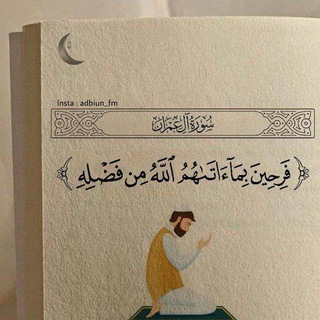 Insta : adbiun_fm
سُورَةُ آلِ عِمْرَان
﴿ فَرِحِينَ بِمَآ ءَاتَىٰهُمُ ٱللَّهُ مِن فَضْلِهِ ﴾